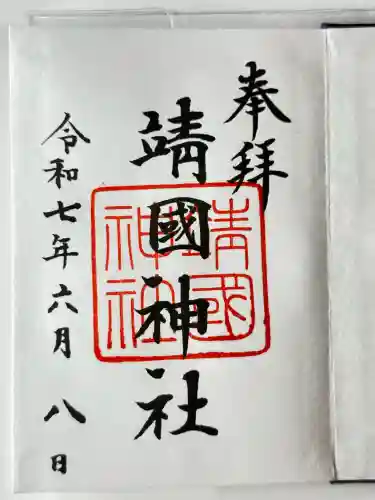 奉拝
靖國神社
靖國神社
令和七年六月八日